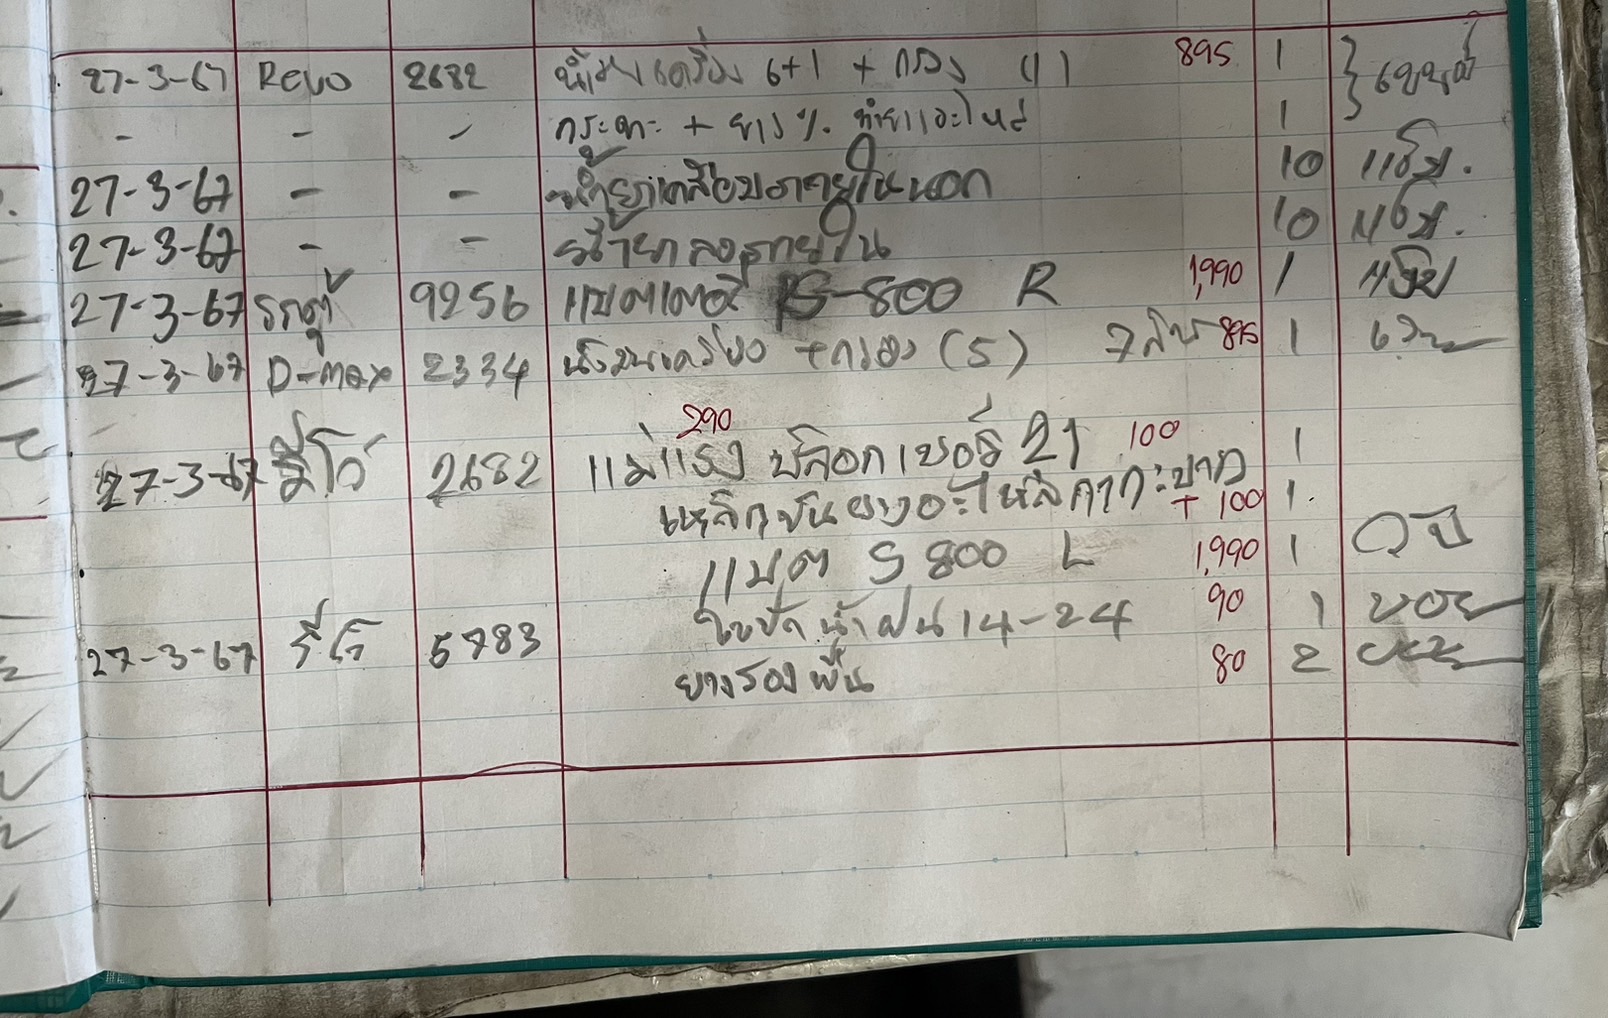 27-3-67 Revo 2682 น้ำมันเครื่อง 6+1 + กรอง (1) 895 1
- - - กระทะ + ยาง % ท้ายอะไหล่ 1
27-3-67 - - น้ำยาเคลือบภายในนอก 10
27-3-67 - - น้ำยาลงภายใน 10
27-3-67 รถตู้ 9256 แบตเตอรี่ S-800 R 1,990 1
27-3-67 D-max 2334 น้ำมันเครื่อง +กรอง (5) 7 ลิตร 895 1
290
27-3-67 รีโว่ 2682 แม่แรง บล๊อกเบอร์ 21 100 1
เหล็กขันยางอะไหล่ + 100 1
แบต S 800 L 1,990 1
ใบปัดน้ำฝน 14-24 90 1
27-3-67 รีโว่ 5783
ยางรองพื้น 80 2